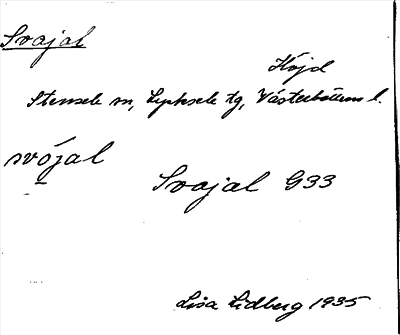 Svajal
Höjd
Stensele sn, Lycksele tg, Västerbottens l.
svójal
Svajal G33
Lisa Lidberg 1935